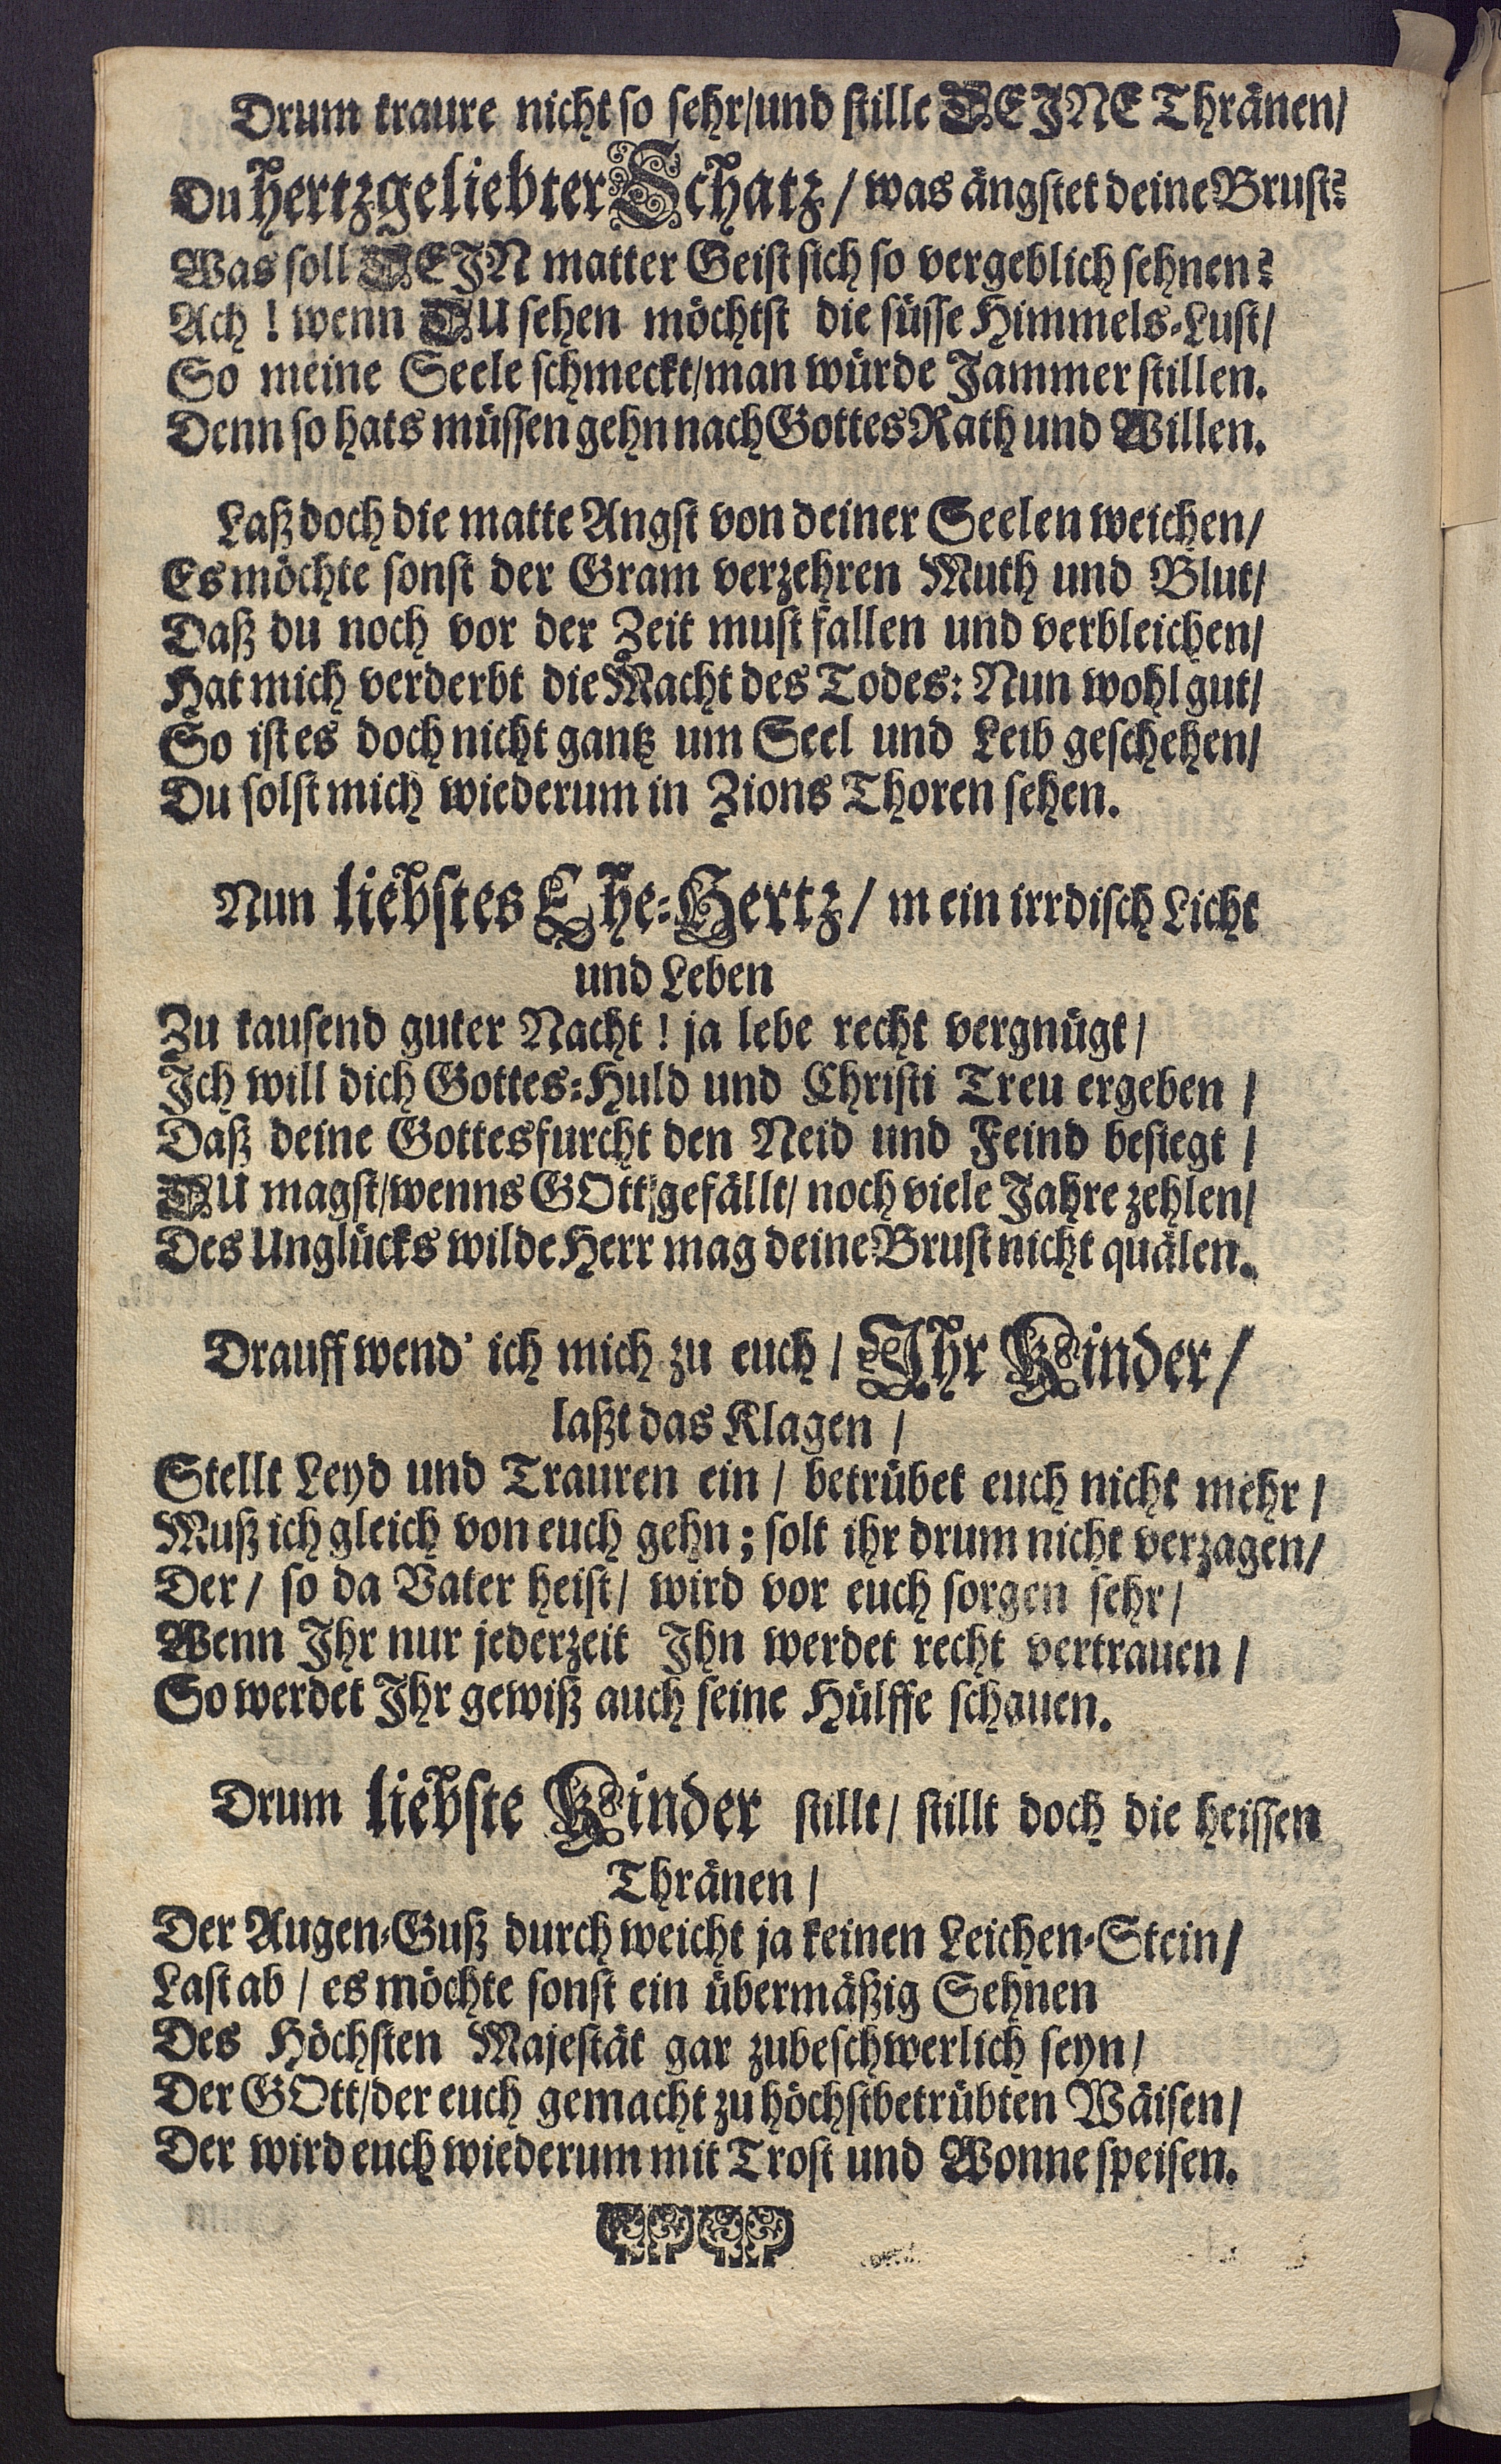 Drum traure nicht so sehr/und stille DEJNE Thränen/
Du hertzgeliebter Schatz/ was ängstet deine Brust?
Was soll DEJN matter Geist sich so vergeblich sehnen?
Ach! wenn DU sehen möchtst die süsse Himmels-Lust/
So meine Seele schmeckt/man würde Jammer stillen.
Denn so hats müssen gehn nach Gottes Rath und Willen.
Laß doch die matte Angst von deiner Seelen weichen/
Es möchte sonst der Gram verzehren Muth und Blut/
Daß du noch vor der Zeit must fallen und verbleichen/
Hat mich verderbt die Macht des Todes: Nun wohl gut/
So ist es doch nicht gantz um Seel und Leib geschehen/
Du solst mich wiederum in Zions Thoren sehen.
Nun liebstes Ehe-Hertz/ mein irrdisch Licht
und Leben
Zu tausend guter Nacht! ja lebe recht vergnügt/
Jch will dich Gottes-Huld und Christi Treu ergeben/
Daß deine Gottesfurcht den Neid und Feind besiegt/
DU magst/wenns GOtt gefällt/ noch viele Jahre zehlen/
Des Unglücks wilde Herr mag deine Brust nicht quälen.
Drauff wend' ich mich zu euch/ Jhr Kinder/
laßt das Klagen/
Stellt Leyd und Trauren ein/ betrübet euch nicht mehr/
Muß ich gleich von euch gehn; solt ihr drum nicht verzagen/
Der/ so da Vater heist/ wird vor euch sorgen sehr/
Wenn Jhr nur jederzeit Jhn werdet recht vertrauen/
So werdet Jhr gewiß auch seine Hülffe schauen.
Drum liebste Kinder stillt/ stillt doch die heissen
Thränen/
Der Augen-Guß durchweicht ja keinen Leichen-Stein/
Last ab/ es möchte sonst ein übermäßig Sehnen
Des Höchsten Majestät gar zubeschwerlich seyn/
Der GOtt/der euch gemacht zu höchstbetrübten Wäisen/
Der wird euch wiederum mit Trost und Wonne speisen.